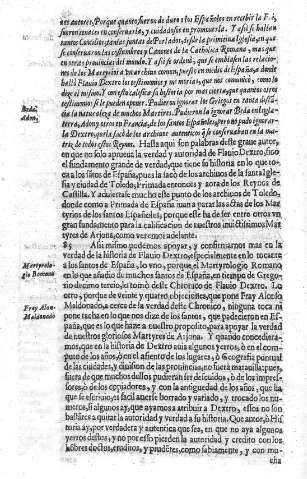 res autores, Porque quanto fueron de duro a los Españoles en recebir la Fè,
fueron tenaces en conseruarla, y cuidadosos en promouerla. Y assi se hallan
tantos Concilios, tantas juntas de Perlados, desde la primitiua Iglesia, en que
se conseruaron las costumbres y Canones de la Catholica Romana, mas que
en otras prouincias del mundo. Y assi se ordenò, que se embiassen las relacio-
nes de los Martyrios a un archiuo comun, puesto en medio de España, a donde
hallò Flauio Dextro los testimonios y memoria, que nos comunicò, como el
dize el mismo. Y con esto califica su historia por mas cierta, que quantos otros
testimonios se le pueden oponer. Pudieron ignorar los Griegos en tanta distã-
cia la naturaleza de muchos Martires. Pudieron ignorar Beda en Ingla-
terra, Adon en Francia, de los santos Españoles, pero no pudo ignorar-
la Dextro, que la sacò de los archiuos autenticos q̃ se conseruauan en la ma-
triz de todos estos Reynos. Hasta aqui son palabras deste graue autor,
en que no solo aprueua la verdad y autoridad de Flauio Dextro, sino
el fundamento grande de verdad, que tiene su historia en lo que to-
ca a los sãtos de España, pues la sacò de los archiuos de la santa Igle-
sia y ciudad de Toledo, Primada entonces y aora de los Reynos de
Castilla. Y aduiertase mucho este punto de los archiuos de Toledo,
donde como a Primada de España iuan a parar las actas de los Mar-
tyrios de los santos Españoles, porque este ha de ser entre otros vn
gran fundamento para la calificacion de nuestros inuictissimos Mar-
tyres de Arjona, como veremos adelante.
85 Assi mismo podemos apoyar, y confirmarnos mas en la
verdad de la historia de Flauio Dextro, especialmente en lo tocante
a los santos de España, lo vno, porque el Martyrologio Romano
en los que añadio de muchos santos de España, en tiempo de Grego-
rio decimo tercio, lo tomò deste Chronico de Flauio Dextro. Lo
otro, porque de veinte y quatro objeciones, que pone Fray Alonso
Maldonado, a cerca de la verdad deste Chronico, ninguna toca ni
pone tacha en lo que nos dize de los santos, que padecieron en Es-
paña, que es lo que haze a nuestro proposito, para apoyar la verdad
de nuestros gloriosos Martyres de Arjona. Y quando concediera-
mos, que en la historia de Dextro auia algunos yerros, ò en el com-
puto de los años, ò en el asiento de los lugares, ò Geografia puntual
de las ciudades, y diuision de las prouincias, no fuera marauilla: pues
fuera de que muchos dellos pudieran ser descuidos, ò de los impres-
sores, ò de los copiadores, y con la antiguedad de los años, que ha
que se escriuio, es facil auerse borrado y variado, y trocado los nu-
meros, si algunos ay, que ayamos atribuir a Dextro, estos no son
bastantes a quitar la autoridad y verdad a su historia. Que autor, ò Hi-
storia ay, por verdadera y autentica que sea, en que no aya algunos
yerros destos, y no por esso pierden la autoridad y credito con los
hõbres doctos, eruditos, y prudẽtes, como sabiamente, y con mu-
cha
Beda,
Adon.
Martyrolo-
gio Romano
Fray Alon.
Maldonado